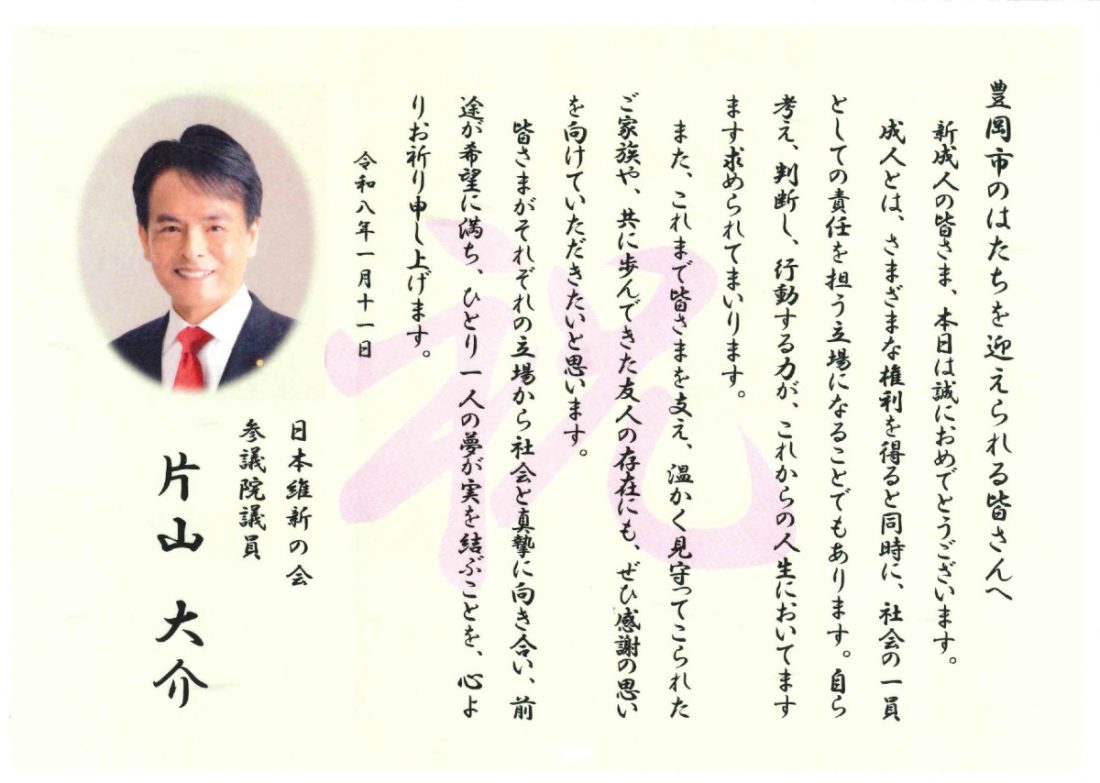 豊岡市のはたちを迎えられる皆さんへ
新成人の皆さま、本日は誠におめでとうございます。
成人とは、さまざまな権利を得ると同時に、社会の一員
としての責任を担う立場になることでもあります。自ら
考え、判断し、行動する力が、これからの人生においてます
ます求められてまいります。
また、これまで皆さまを支え、温かく見守ってこられた
ご家族や、共に歩んできた友人の存在にも、ぜひ感謝の思い
を向けていただきたいと思います。
皆さまがそれぞれの立場から社会と真摯に向き合い、前
途が希望に満ち、ひとり一人の夢が実を結ぶことを、心よ
りお祈り申し上げます。
令和八年一月十一日
日本維新の会
参議院議員
片山大介
祝